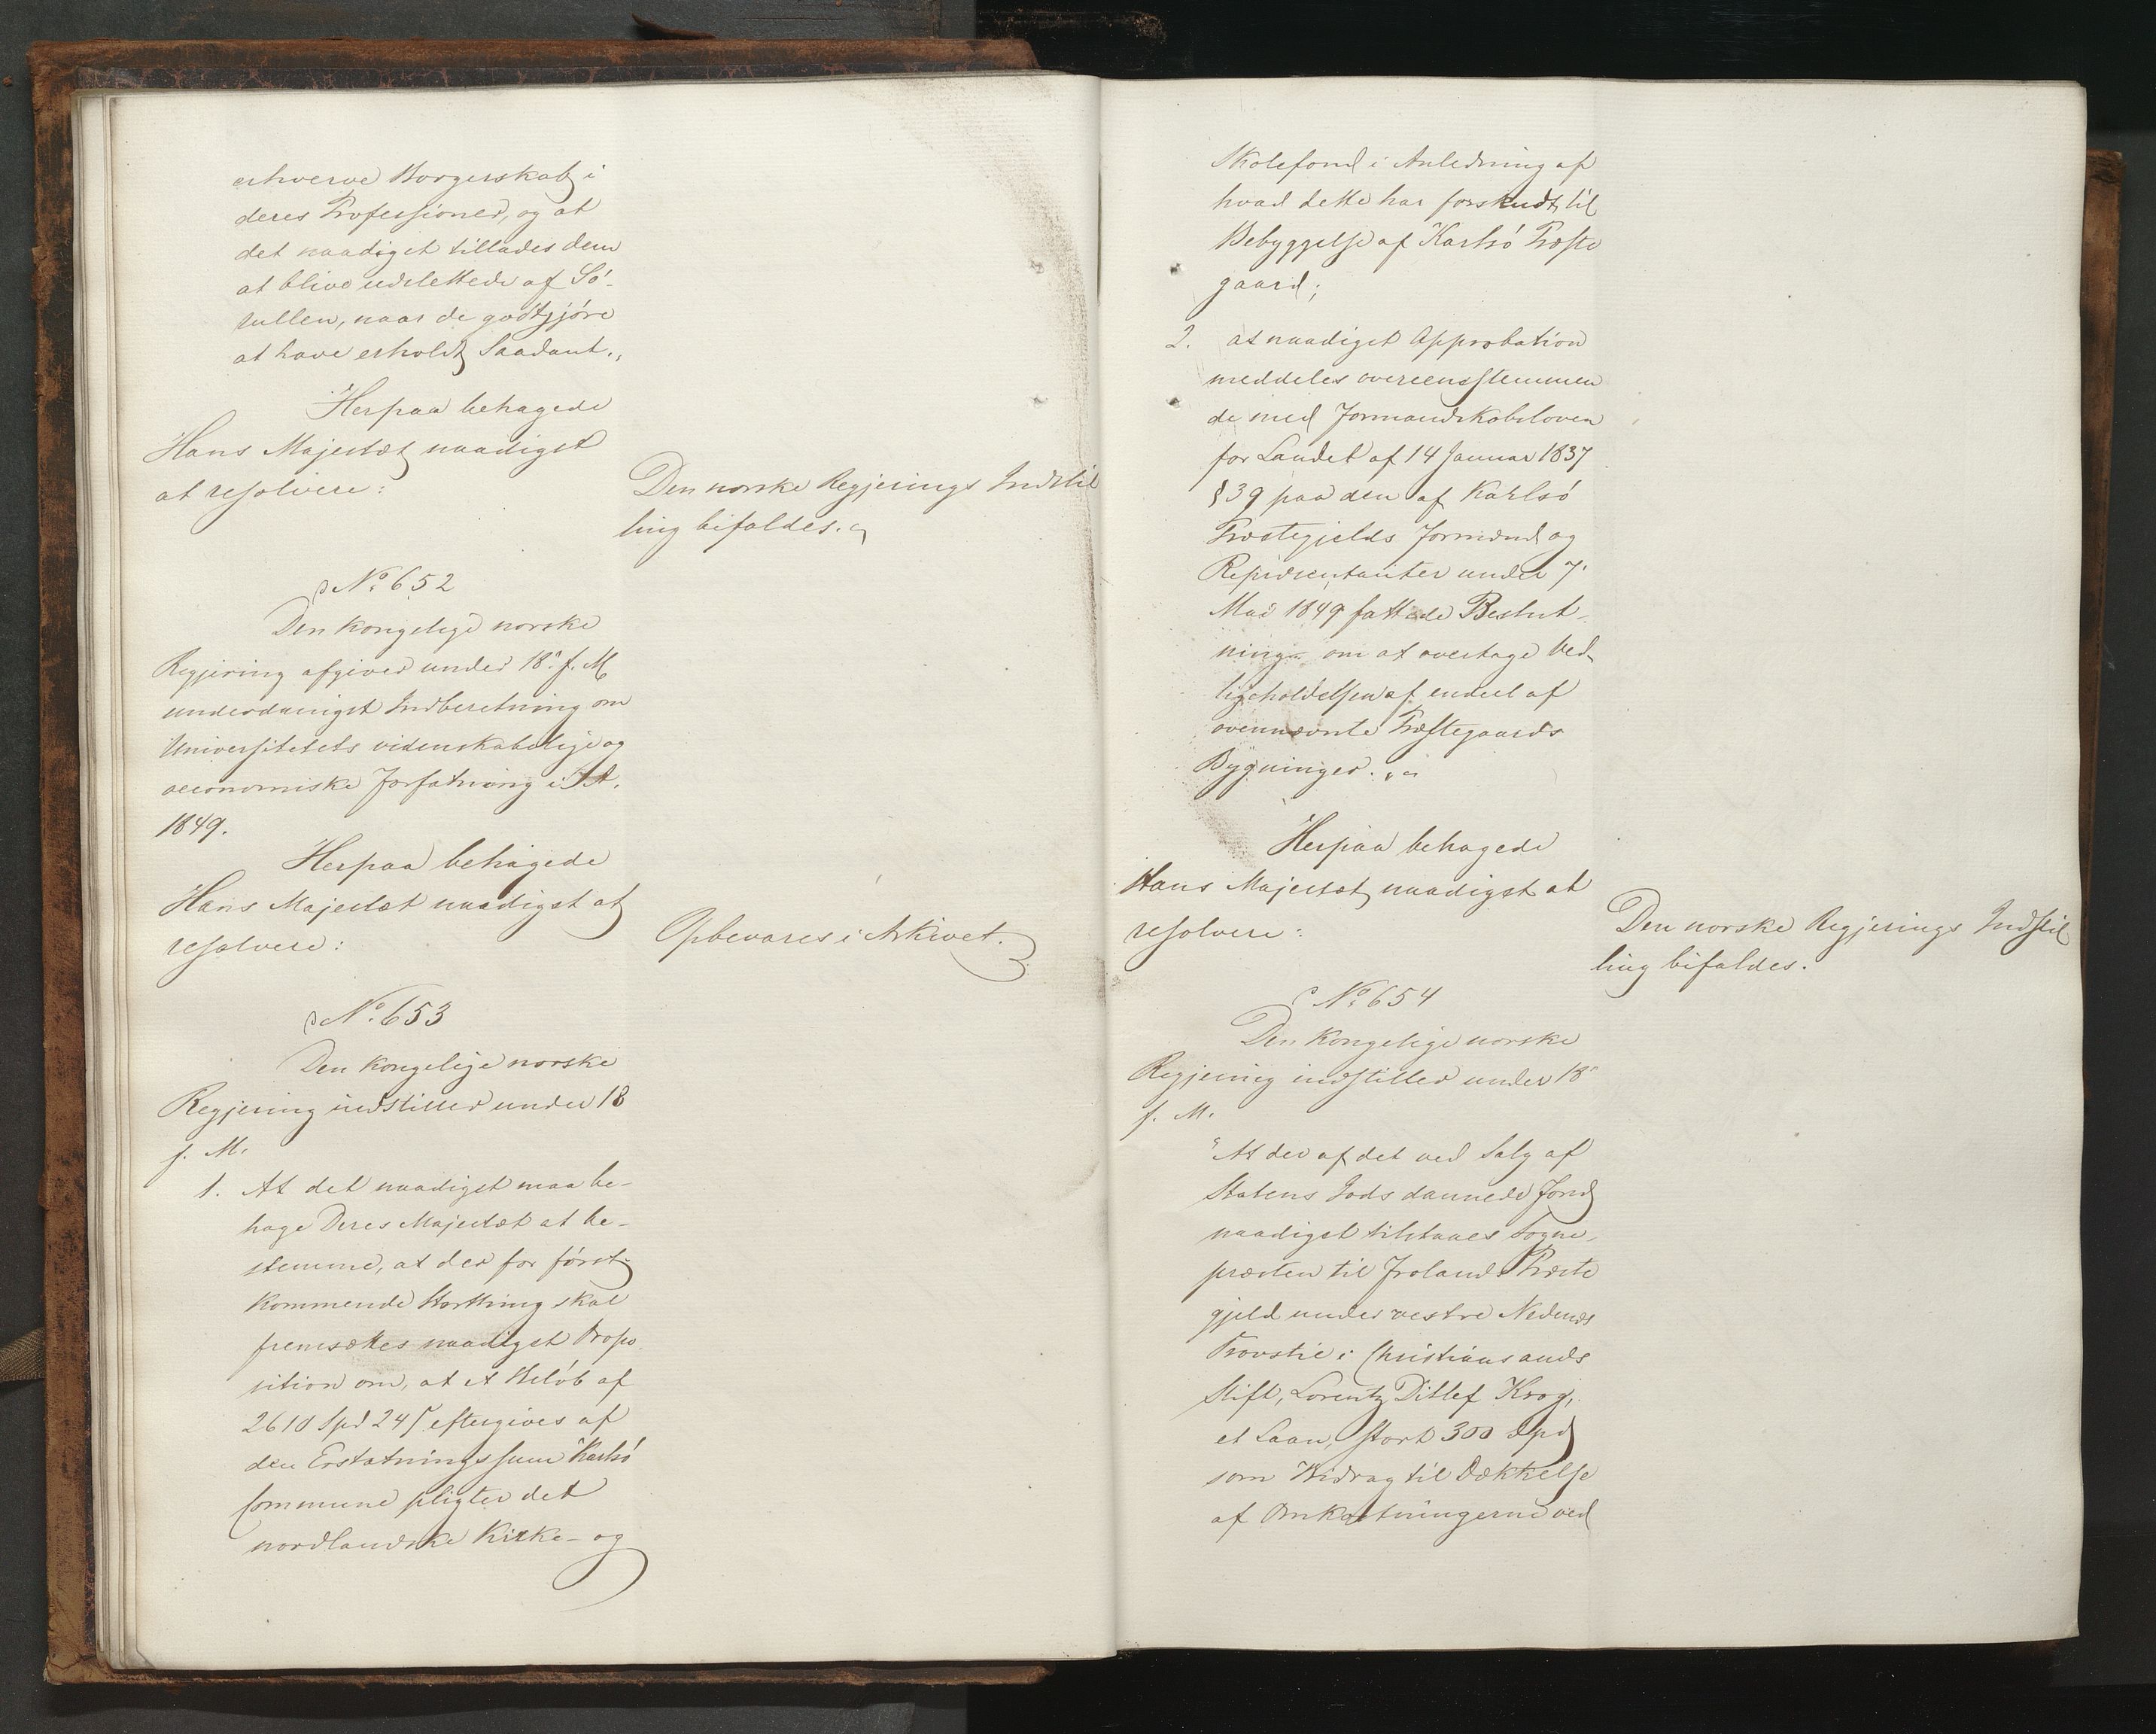 erhverve Borgerskab i
deres Professioner, og at
det naadigst tillades dem
at blive udslettede af Sö-
rullen, naar de godtgjöre
at have erholdt Saadant.„
Herpaa behagede
Hans Majestæt naadigst
at resolvere:
Den norske Regjerings Indstil
ling bifaldes.
No. 652
Den kongelige norske
Regjering afgiver under 18. f. M
underdanigst Indberetning om
Universitetets videnskabelige og
oeconomiske Forfatning i
1849.
Herpaa behagede
Hans Majestæt naadigst at
resolvere:
Opbevares i Arkivet.
No. 653
Den kongelige norske
Regjering indstiller under 18
f. M.
1. At det naadigst maa be-
hage Deres Majestæt at be-
stemme, at der for först
kommende Storthing skal
fremsættes naadigst Propo
sition om, at et Belöb af
2610 Spd 24 ſ eftergives af
den Erstatningssum Karlsö
Commune pligter det
nordlandske Kirke- og
Skolefond i Anledning af
hvad dette har forskudt til
Bebyggelse af Karlsö Præste
gaard;
2. at naadigst Approbation
meddeles overeensstemmen
de med Formandskabsloven
for Landet af 14 Januar 1837
§39 paa den af Karlsö
Præstegjelds Formænd og
Repræsentanter under 7.
Mai 1849 fattede Beslut-
ning om at overtage Ved-
ligeholdelsen af endeel af
ovennævnte Præstegaards
Bygninger.„
Herpaa behagede
Hans Majestæt naadigst at
resolvere:
Den norske Regjerings Indstil
ling bifaldes.
No. 654
Den kongelige norske
Regjering indstiller under 18
f. M.
"At der af det ved Salg af
Statens Gods dannede Fond
naadigst tilstaaes Sogne-
præsten til Frolands Præste
gjeld under vestre Nedenæs
Provstie i Christiansands
Stift, Lorentz Ditlef Krog,
et Laan, stort 300 Spd
som Bidrag til Dækkelse
af Omkostningerne ved